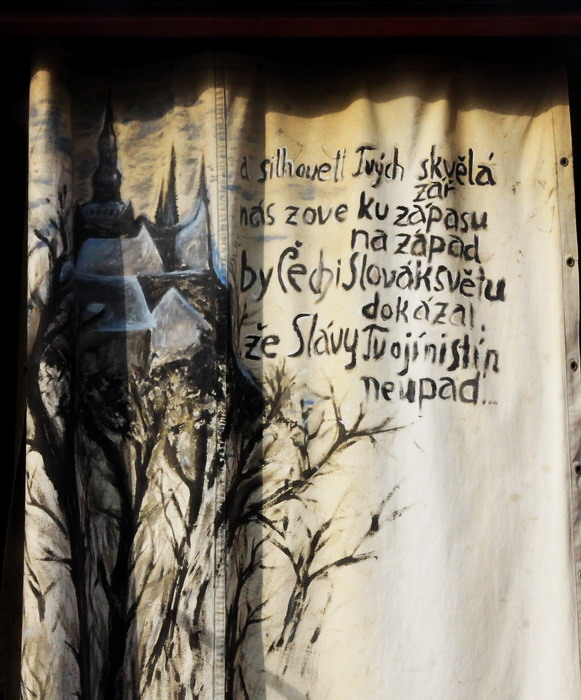 a silhouett Tvých skvělá
zář
nás zove ku zápasu
na západ
by Čech i Slovák světu
dokázal,
že Slávy Tvojí nistín
neupad...